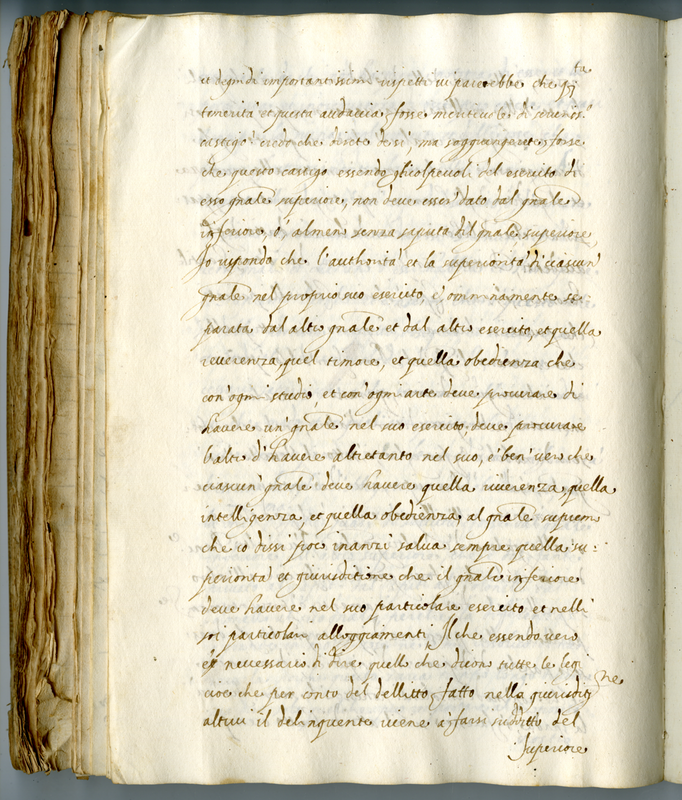 et degni di importantissimi rispetti vi parerebbe che q.ta
temerità et questa audacia fosse meritevole di severiss.o
castigo credo che direte de sì, ma soggiungerete forse
che questo castigo essendo gli colpevoli del esercito di
esso gnale superiore, non deve esser dato dal gnale
inferiore, ò, almen senza saputa dil gnale superiore,
Io rispondo che l'authorità et la superiorità di ciascun
gnale nel proprio suo esercito, è omninamente se
parata dal altro gnale et dal altro esercito, et quella
reverenza, quel timore, et quella obedienza che
con ogni studio et con ogni arte deve procurare di
havere un gnale nel suo esercito, deve procurare
l'altro d'havere altretanto nel suo, è ben ver che
ciascun gnale deve havere quella riverenza, quella
intelligenza, et quella obedienza, al gnale supremo
che io dissi poc inanzi salva sempre quella su:
periorità et giurisditione che il gnale inferiore
deve havere nel suo particolare esercito et nelli
soi particolari alloggiamenti, Il che essendo vero
è necessario di dire quello che dicono tutte le legi
cioè che per conto del dellitto fatto nella giurisdit.ne
altrui il delinquente viene à farsi suddito del
superiore